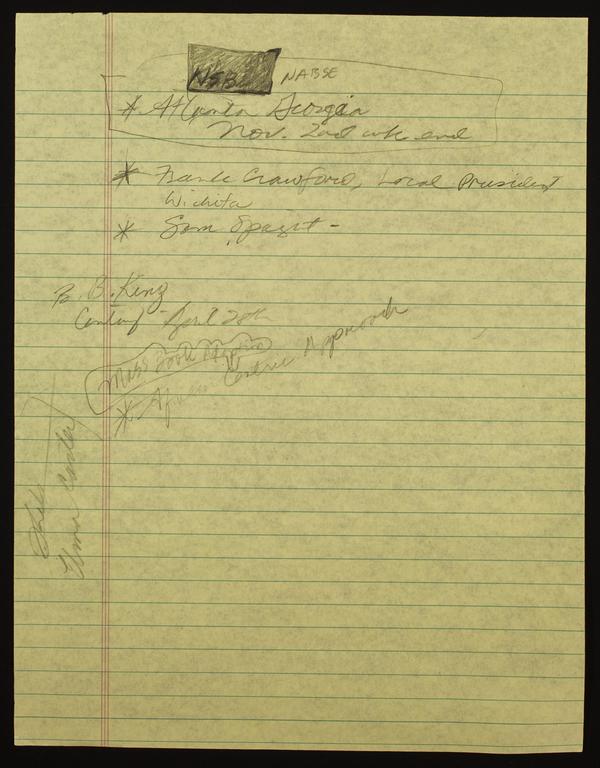 NSB NABSE
* Atlanta Georgia
Nov. 2nd wk end
* Frank Crawford, Local President
Wichita
* Sam Spaght -
B. B. King
April 28th
Mass Book
* Centric Approach
Elmer Carter